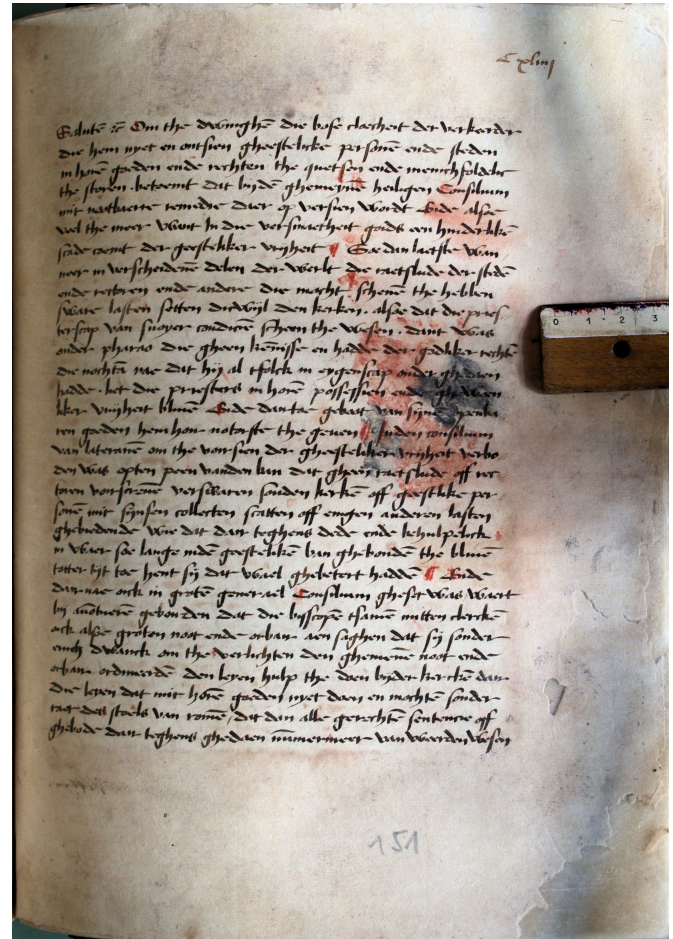 C xliiij
Salutē etc Om the dwinghē die bose claecheit der verkierder
die hem nyet en ontsien gheestelicke personē ende steden
in horē goeden ende rechten the quetsen ende menichfoldelic
the storen beteemt dat bydē ghemeynē heiligen Consilium
mit remedie daer op versien wordt Ende alsoe
vel the meer want in die versmaetheit goids een hinderlikē
scade coemt der geestliker vryheit ¶ Soe dan laetste wan
neer in verscheidenē delen der werlt die raetslude der stedē
ende rectoren ende andere die macht schenē the hebben
sware lasten setten dicwyl den kerken alsoe dat die pries
terscap van snoyer condicie scheen the wesen dant was
onder pharao die gheen kēnisse en hadde der godliker rechtē
die nochtā nae dat hij al tfolck in eygenscap onder ghedaen
hadde let die priesters in horen possessien ende
liker vryheit bliuē Ende daer toe gebaet van synē
ren goeden hem hoir notorfte the geuen ¶ Inden consilium
van lateranē om the voirsien der gheesteliker vryheit verbo
den was opten peen vanden ban dat gheen raetslude off rec
toren voirscreuē verswaren souden kerkē off geestlike per
sonē mit synsen collecten scatten off enigen anderen lasten
ghebiedende wie dat daer teghens dede ende behulpelick
in waer soe lange indē geestelikē ban ghebonden the bliuē
totter tyt toe hent sij dat wael ghebetert haddē ¶ Ende
dair nae oick in grotē generael Consilium gheset was waert
bij gebonden dat die bysscope tsamē mitten clerckē
oick alsoe groten noot ende orbaer aen saghen dat sij sonder
enich dwanck om the verlichten den ghemeinē noot ende
orbaer ordineerdē den leyen hulp the doen byder kerckē daer
die leyen dat mit horē goeden nyet doen en mochten sonder
raet des stoels van romē, dat dan alle gerechtē sentencie off
ghebode daer teghens ghedaen nūmermeer van weerden wesen
151
0 1 2 3